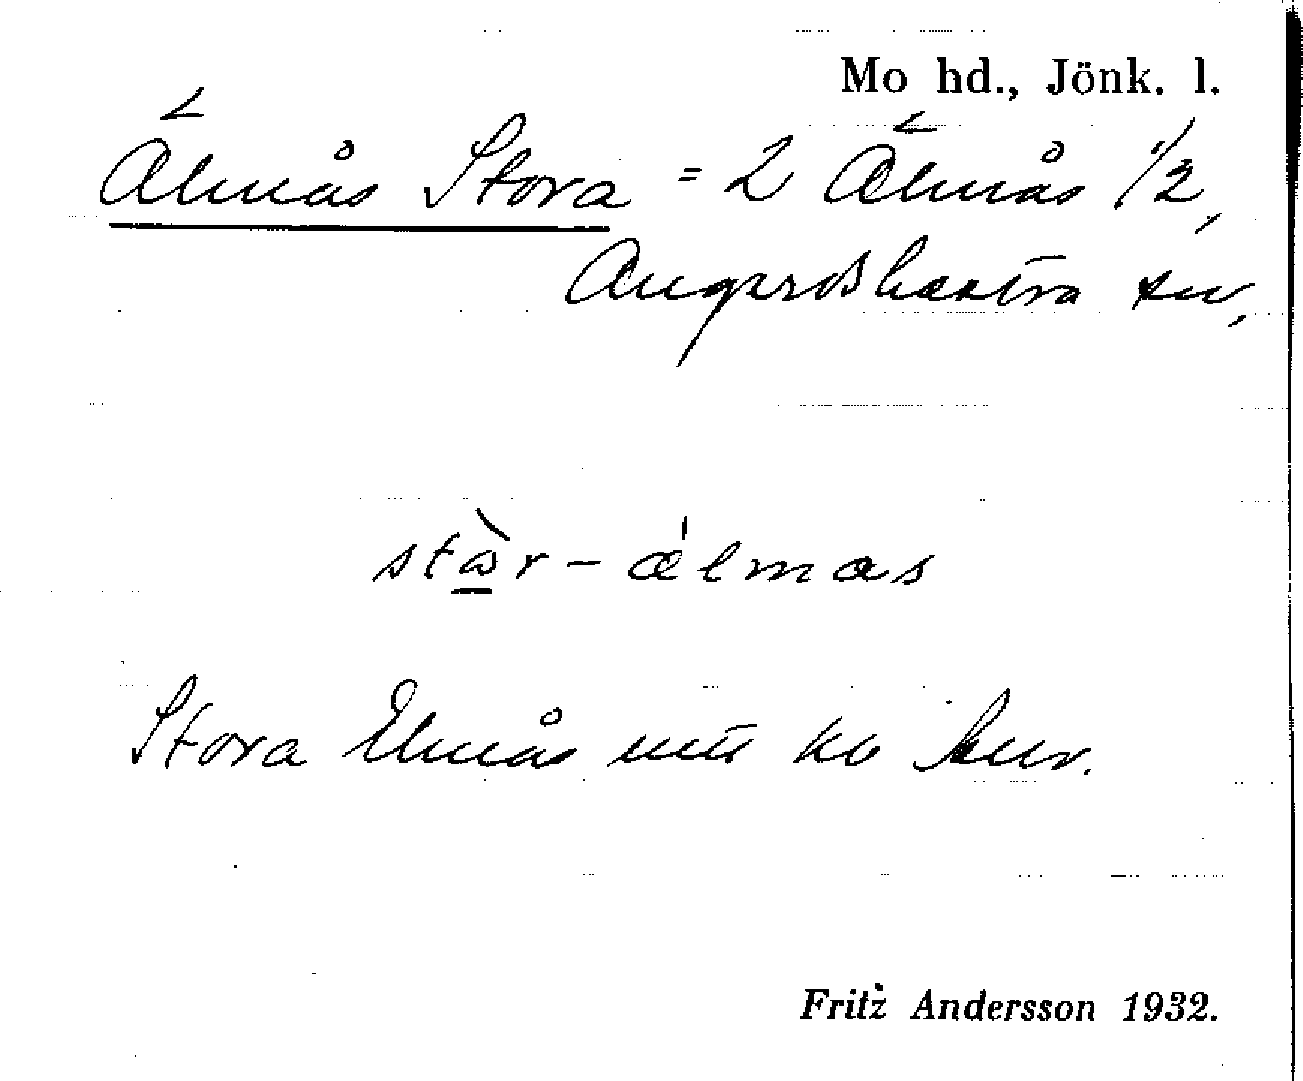 Mo hd., Jönk. l.
Älmås Stora = 2 Älmås 1/2,
Angerdshestra sn,
stòr - ælmas
Stora Elmås
Fritz Andersson 1932.